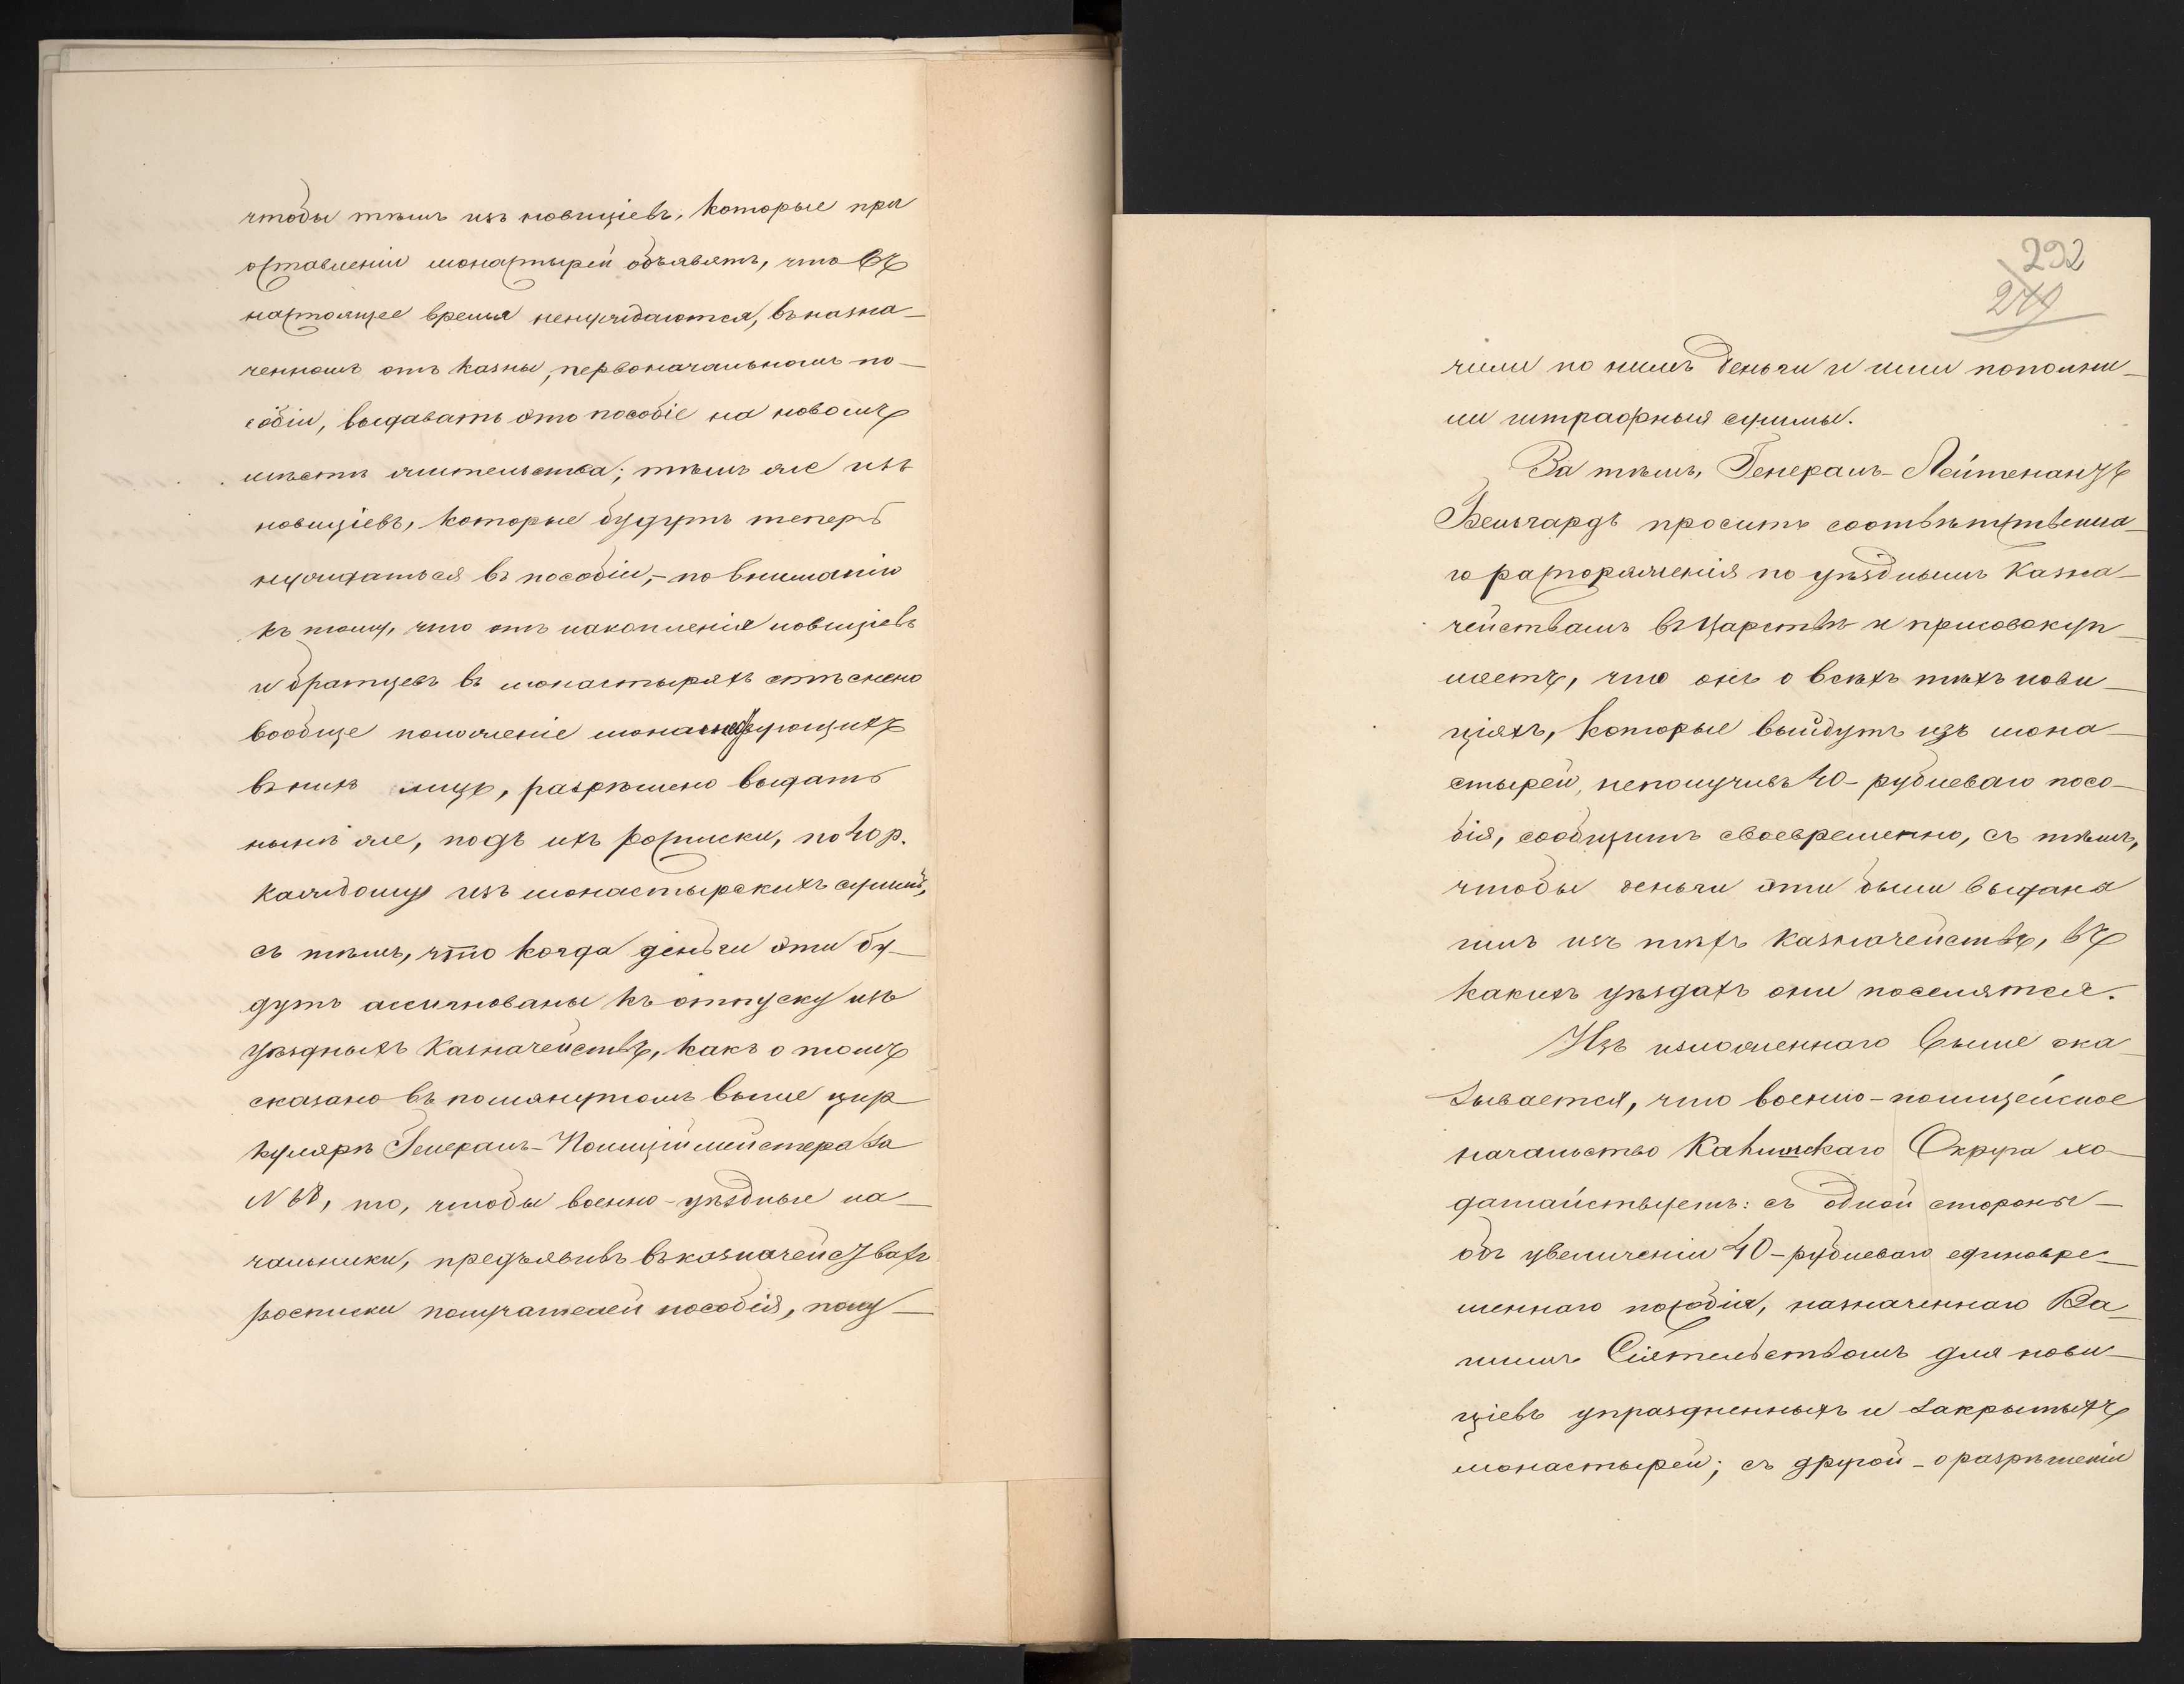 чтобы тѣмъ изъ новиціевъ, которые при
оставленіи монастырей объявятъ, что въ
настоящее время ненуждаются, въ назна-
ченномъ отъ казны, первоначальномъ по-
собіи, выдавать это пособіе на новомъ
мѣстѣ жительства; тѣмъ же изъ
новиціевъ, которые будутъ теперь
нуждаться въ пособіи, - по вниманію
къ тому, что отъ накопленія новиціевъ
и братцевъ въ монастыряхъ стѣснено
вообще положеніе монашествующихъ
въ нихъ лицъ, разрѣшено выдать
нынѣ же, подъ ихъ росписки, по 40 р.
каждому изъ монастырскихъ суммъ,
съ тѣмъ, что когда деньги эти бу-
дутъ ассигнованы къ отпуску изъ
уѣздныхъ Казначействъ, какъ о томъ
сказано въ помянутомъ выше цир
кулярѣ Генералъ-Полиціймейстера за
N, то, чтобы военно-уѣздные на-
чальники, предъявивъ въ козначействахъ
росписки получателей пособія, полу-
292
279
чили по нимъ деньги и ими пополни-
ли штрафныя суммы.
За тѣмъ, Генералъ-Лейтенантъ
Бельгардъ проситъ соотвѣтственна-
го распоряженія по уѣзднымъ Казна-
чействамъ въ Царствѣ и присовокуп-
ляетъ, что онъ о всѣхъ тѣхъ нови-
ціяхъ, которые выйдутъ изъ мона-
стырей, неполучивъ 40-рублеваго посо-
бія, сообщитъ своевременно, съ тѣмъ,
чтобы деньги эти были выдана
имъ изъ тѣхъ казначействъ, въ
какихъ уѣздахъ они поселятся.
Изъ изложеннаго выше ока-
зывается, что военно-полицейское
начальство Калишскаго Округа хо-
датайствуетъ: съ одной стороны-
объ увеличеніи 40-рублеваго единовре-
меннаго пособія, назначеннаго Ва-
шимъ Сіятельствомъ для нови-
ціевъ упраздненныхъ и закрытыхъ
монастырей; съ другой - о разрѣшеніи